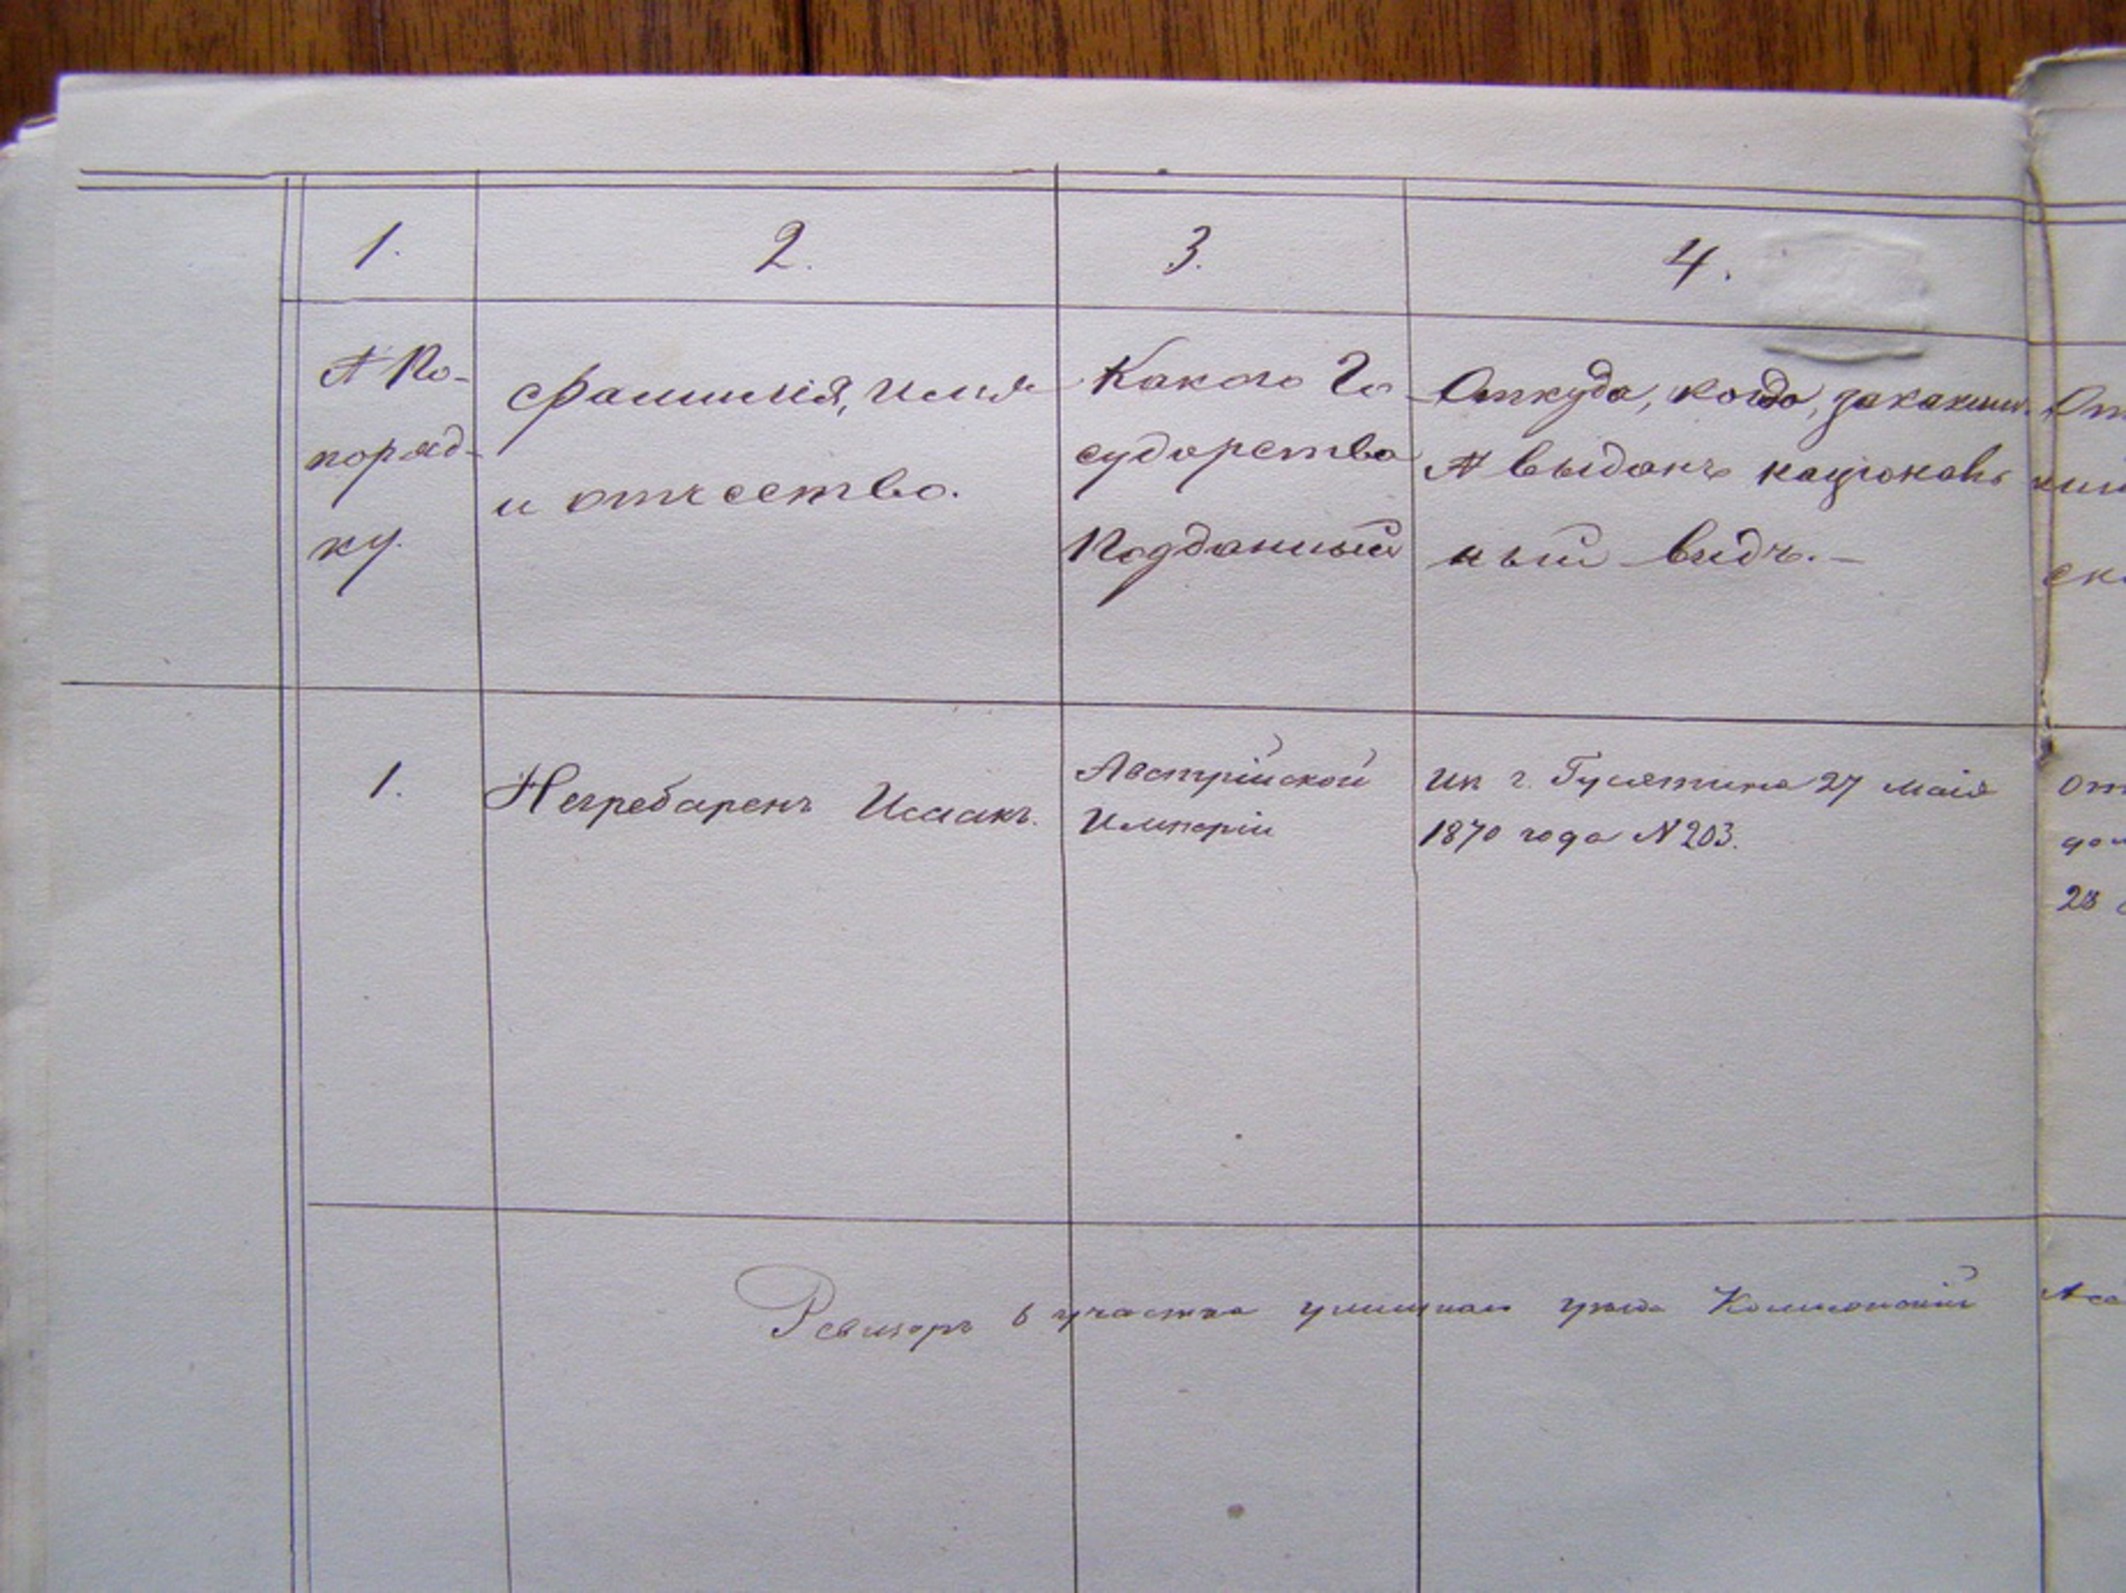 1.
2.
3.
4.
№ По-
поряд-
ку.
Фамилія, имя
и отчество.
Какого Го
сударства
Подданный
Откуда, когда, за какимъ
№ выданъ націоналъ
ный видъ.—
1.
Негребаренъ Исаакъ.
Австрійской
Имперіи
Ип г. Гусятина 27 маія
1870 года №203.
От
28
Ревизоръ 6 участка